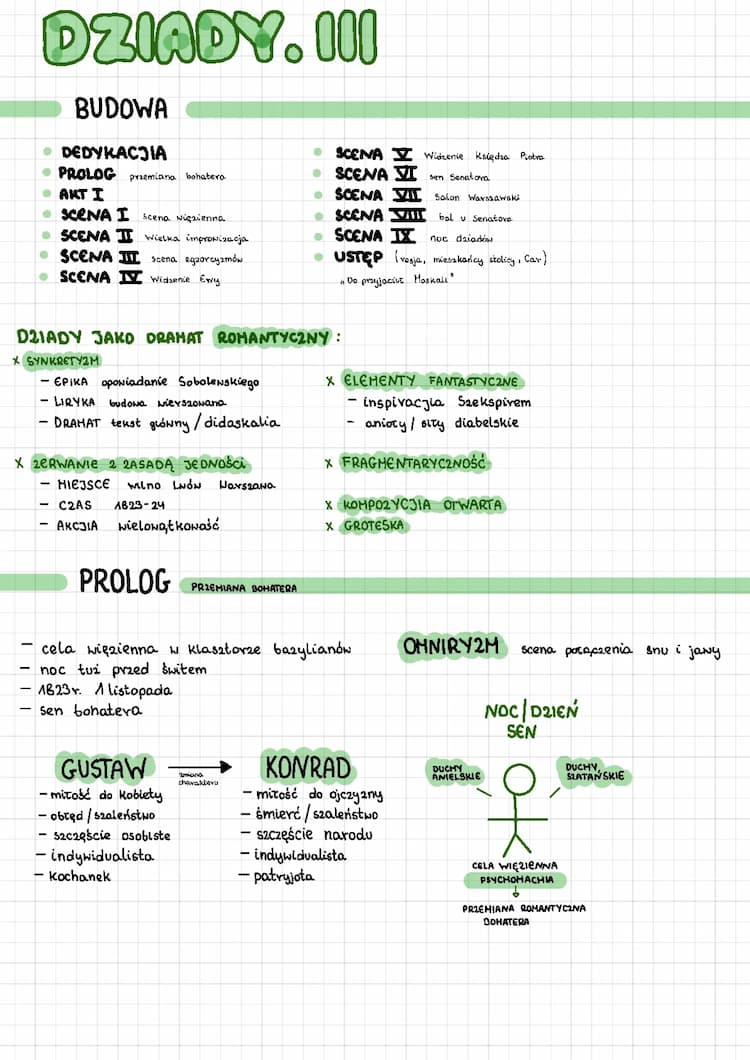 DZIADY. III
BUDOWA
DEDYKACJIA
PROLOG przemiana bohatera
AKT I
SCENA I scena więzienna
SCENA II Wielka improwizacja
SCENA III scena egzorcyzmów
SCENA IV Widzenie Ewy
SCENA V Widzenie Księdza Piotra
SCENA VI sen Senatora
SCENA VII Salon Warszawski
SCENA VIII bal u Senatora
SCENA IX noc dziadów
USTĘP (rosja, mieszkańcy stolicy, Car)
"Do przyjaciół Moskali"
DZIADY JAKO DRAMAT ROMANTYCZNY:
x SYNKRETYZM
- EPIKA opowiadanie Sobolewskiego
- LIRYKA budowa wierszowana
- DRAMAT tekst główny/didaskalia
x ZERWANIE Z ZASADĄ JEDNOŚCI
- MIEJSCE wilno Lwów Warszawa
- CZAS 1823-24
- AKCJIA wielowątkowość
x ELEMENTY FANTASTYCZNE
- inspiracjia Szekspirem
- anioły/siły diabelskie
x FRAGMENTARYCZNOŚĆ
x KOMPOZYCJIA OTWARTA
x GROTESKA
PROLOG PRZEMIANA BOHATERA
- cela więzienna w klasztorze bazylianów
- noc tuż przed świtem
- 1823r. 1 listopada
- sen bohatera
GUSTAW
zmiana
charakteru
- miłość do kobiety
- obłęd/szaleństwo
- szczęście osobiste
- indywidualista
- kochanek
KONRAD
- miłość do ojczyzny
- śmierć/szaleństwo
- szczęście narodu
- indywidualista
- patryjota
OMNIRYZM scena połączenia snu i jawy
NOC/DZIEŃ
SEN
DUCHY
ANIELSKIE
DUCHY,
SZATAŃSKIE
CELA WIĘZIENNA
PSYCHOMACHIA
PRZEMIANA ROMANTYCZNA
BOHATERA